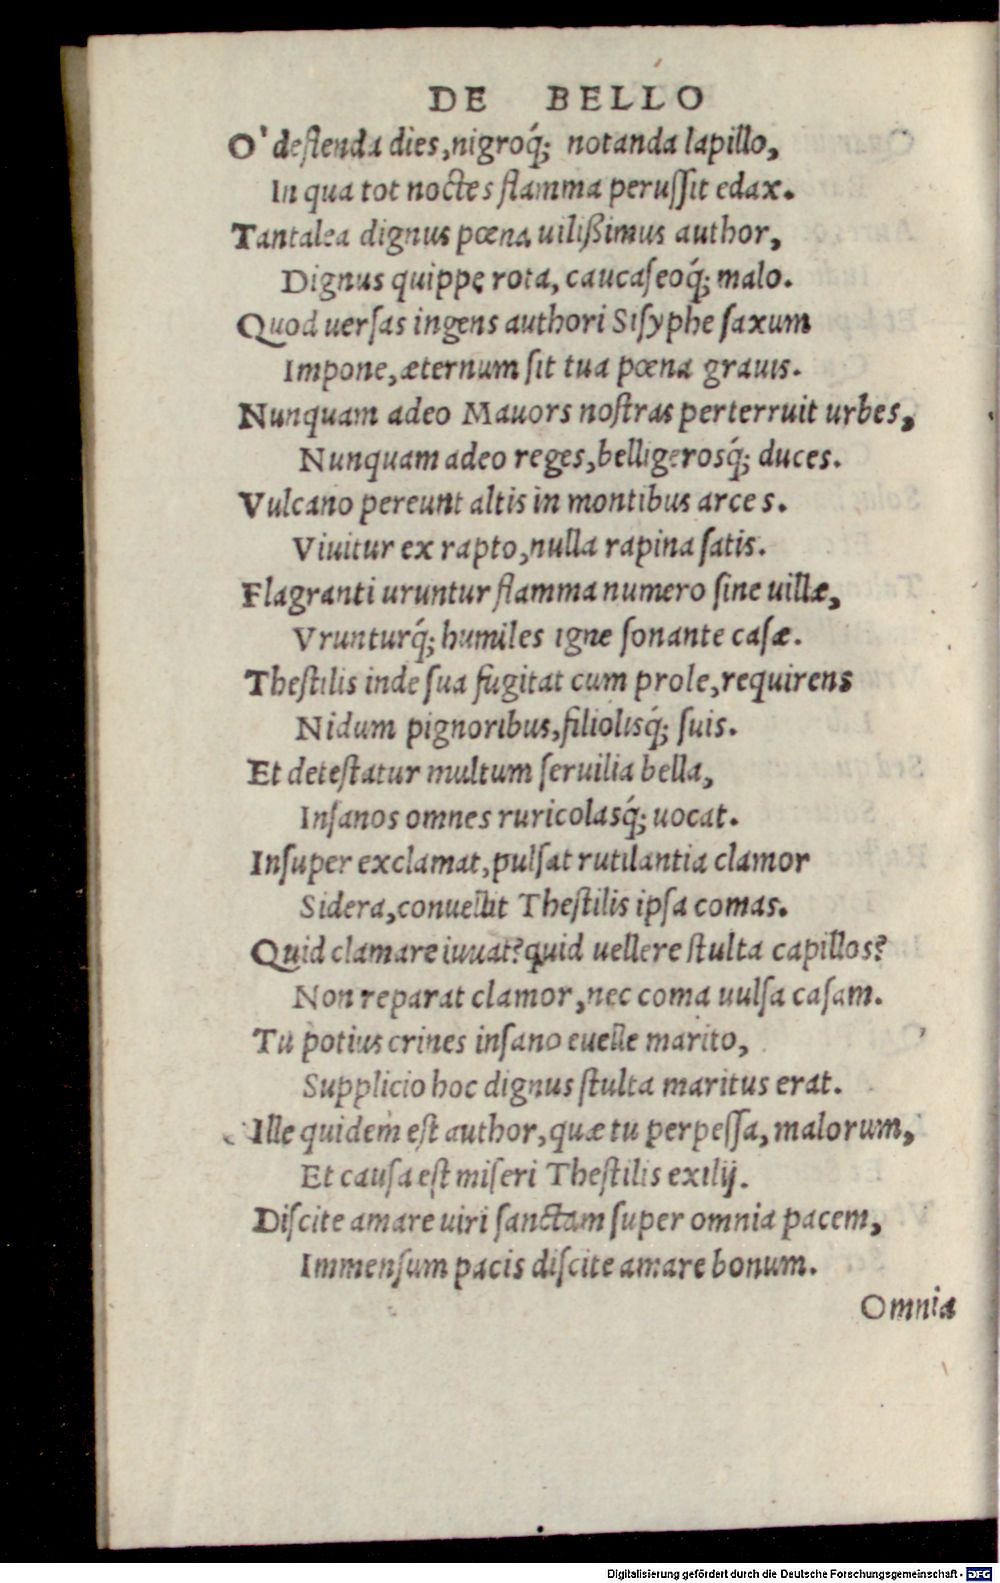 DE BELLO
O' deflenda dies, nigroq́; notanda lapillo,
In qua tot noctes flamma perussit edax.
Tantalea dignus pœna uilißimus author,
Dignus quippe rota, caucaseoq́; malo.
Quod uersas ingens authori Sisyphe saxum
Impone, æternum sit tua pœna grauis.
Nunquam adeo Mauors nostras perterruit urbes,
Nunquam adeo reges, belligerosq́; duces.
Vulcano pereunt altis in montibus arces.
Viuitur ex rapto, nulla rapina satis.
Flagranti uruntur flamma numero sine uillæ,
Vrunturq́; humiles igne sonante casæ.
Thestilis inde sua fugitat cum prole, requirens
Nidum pignoribus, filiolisq́; suis.
Et detestatur multum seruilia bella,
Insanos omnes ruricolasq́; uocat.
Insuper exclamat, pulsat rutilantia clamor
Sidera, conuellit Thestilis ipsa comas.
Quid clamare iuuat? quid uellere stulta capillos?
Non reparat clamor, nec coma uulsa casam.
Tu potius crines insano euelle marito,
Supplicio hoc dignus stulta maritus erat.
Ille quidem est author, quæ tu perpessa, malorum,
Et causa est miseri Thestilis exilij.
Discite amare uiri sanctam super omnia pacem,
Immensum pacis discite amare bonum.
Omnia
Digitalisierung gefördert durch die Deutsche Forschungsgemeinschaft - DFG